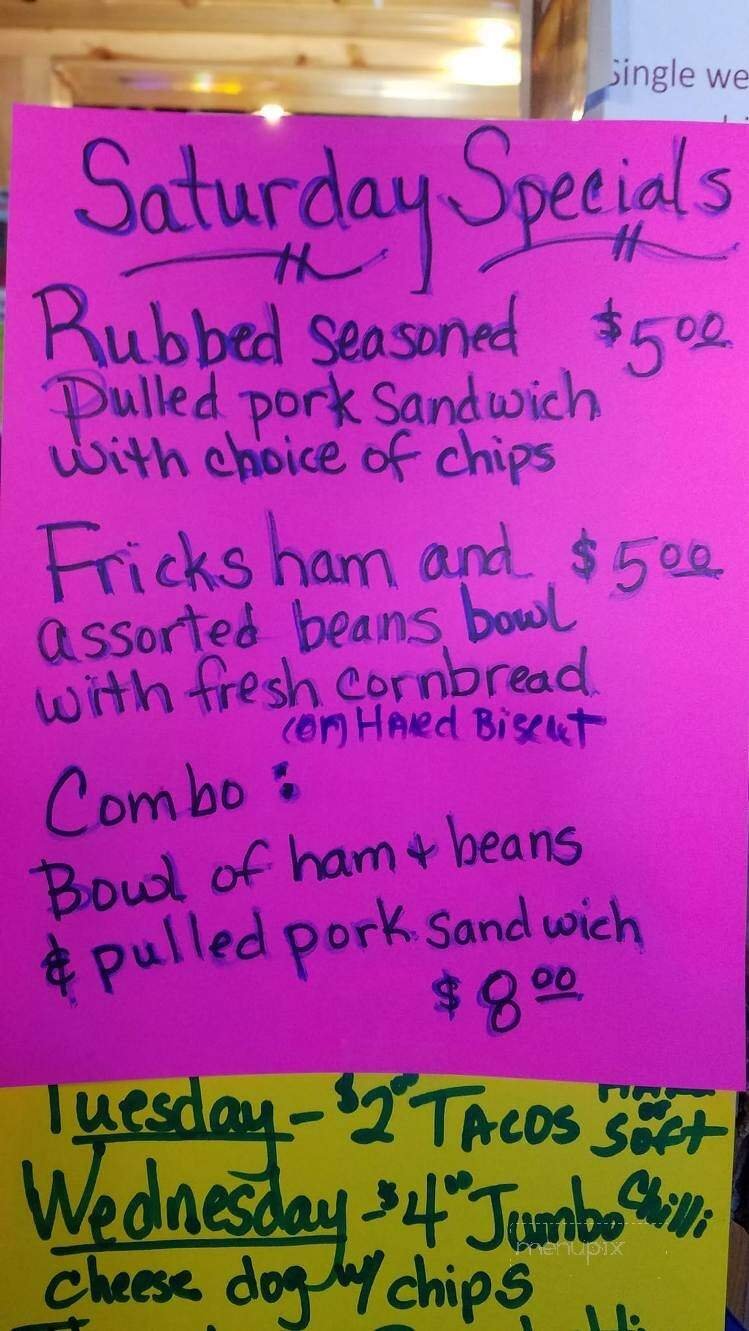 Single we
Saturday Specials
Rubbed seasoned $5.00
Pulled pork Sandwich
with choice of chips
Fricks ham and $5.00
assorted beans bowl
with fresh cornbread
(or) HARD Biscut
Combo:
Bowl of ham + beans
& pulled pork Sandwich
$8.00
Tuesday - $2.00 TACOS
or
Soft
Wednesday - $4.00 Jumbo Chilli
cheese dog w/ chips
menupix